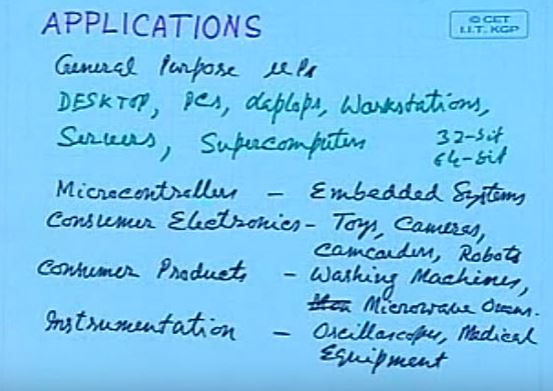 APPLICATIONS
© CET
I.I.T. KGP
General Purpose μPs
DESKTOP, PCs, Laptops, Workstations,
Servers, Supercomputers 32-bit
64-bit
Microcontrollers – Embedded Systems
Consumer Electronics – Toys, Cameras,
Camcorders, Robots
Consumer Products – Washing Machines,
Microwave Ovens.
Instrumentation – Oscilloscopes, Medical
Equipment